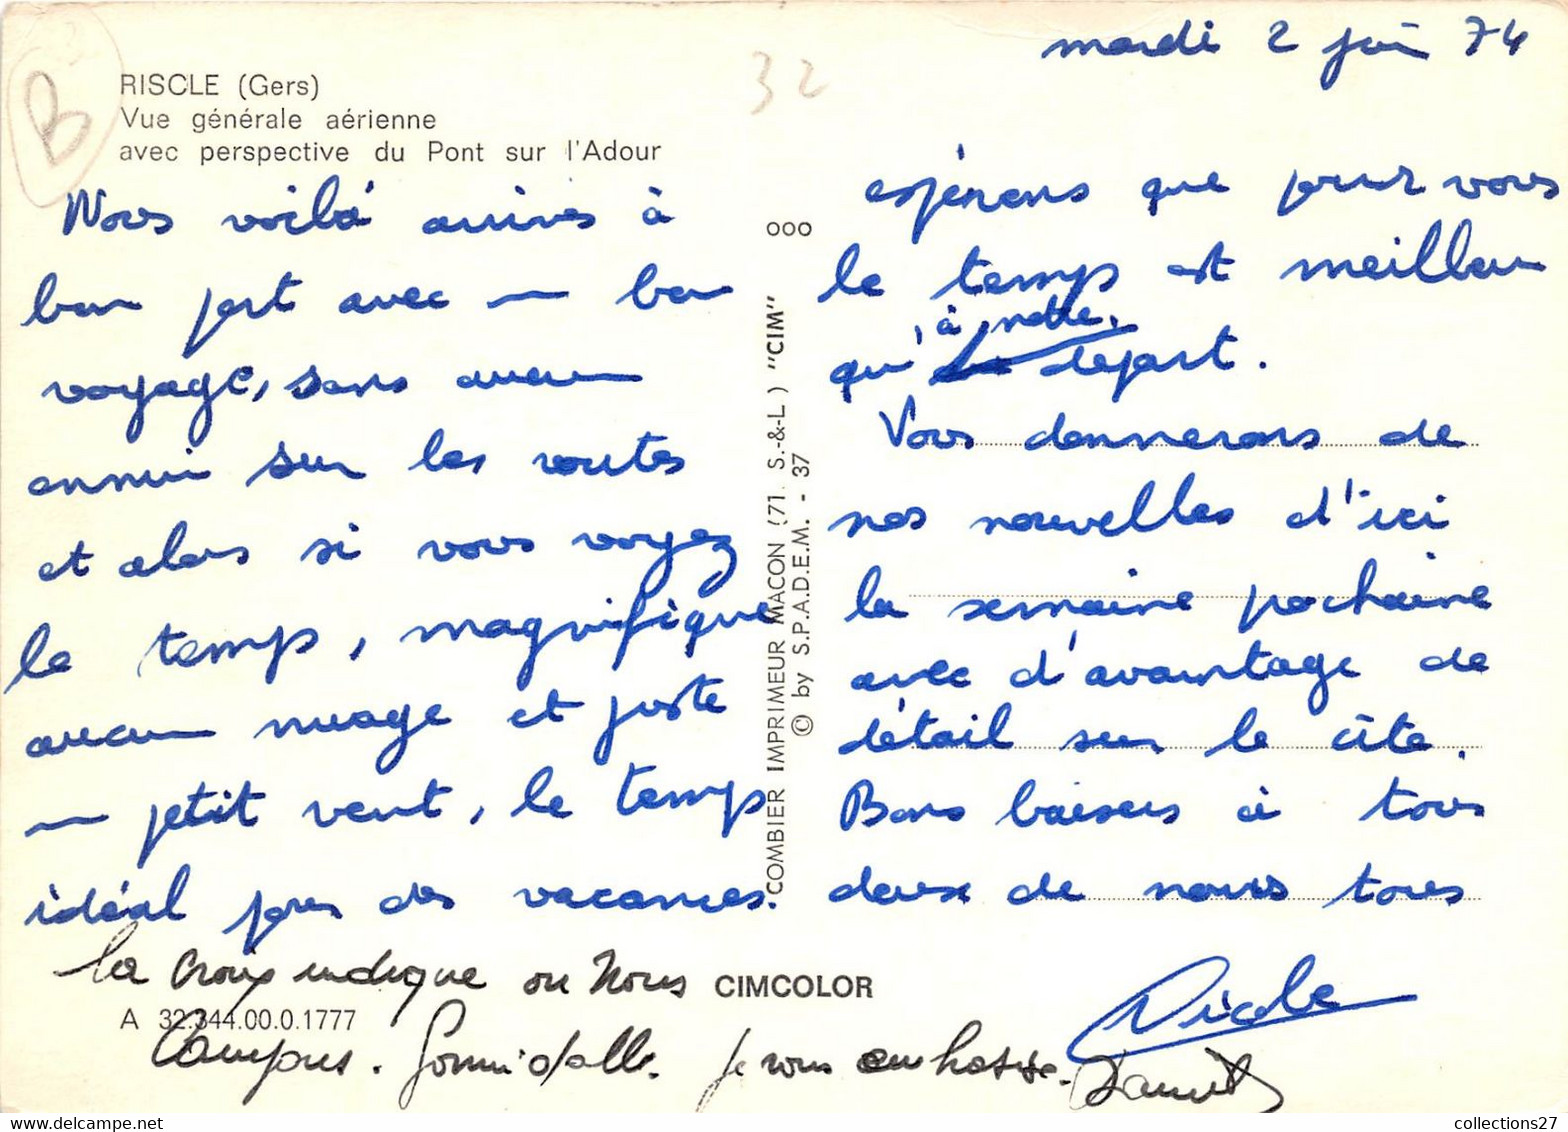 mardi 2 juin 74
32
B
RISCLE (Gers)
Vue générale aérienne
avec perspective du Pont sur l'Adour
Nous voilà arrivés à
bon port avec un bon
voyage, sans aucun
ennui sur les routes
et alors si vous voyez
le temps, magnifique
aucun nuage et juste
un petit vent, le temps
idéal pour des vacances.
la croix indique ou nous
Campons. Formidable. Je vous embrasse.
ooo
COMBIER IMPRIMEUR MACON (71. S.-&-L.) "CIM"
© by S.P.A.D.E.M. - 37
espérons que pour vous
le temps est meilleur
qu'à notre départ.
Vous donnerons de
nos nouvelles d'ici
la semaine pochaine
avec d'avantage de
détail sur le site.
Bons baisers à tous
deux de nous tous
Nicole
CIMCOLOR
A 32.344.00.0.1777
collections27